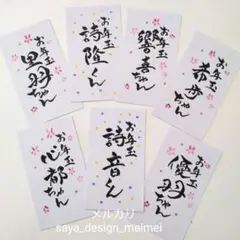 お年玉
黒羽ちゃん
お年玉
詩隆くん
お年玉
響喜ちゃん
お年玉
希母ちゃん
お年玉
心都ちゃん
お年玉
詩音くん
お年玉
優羽ちゃん
メルカリ
saya_design_meimei